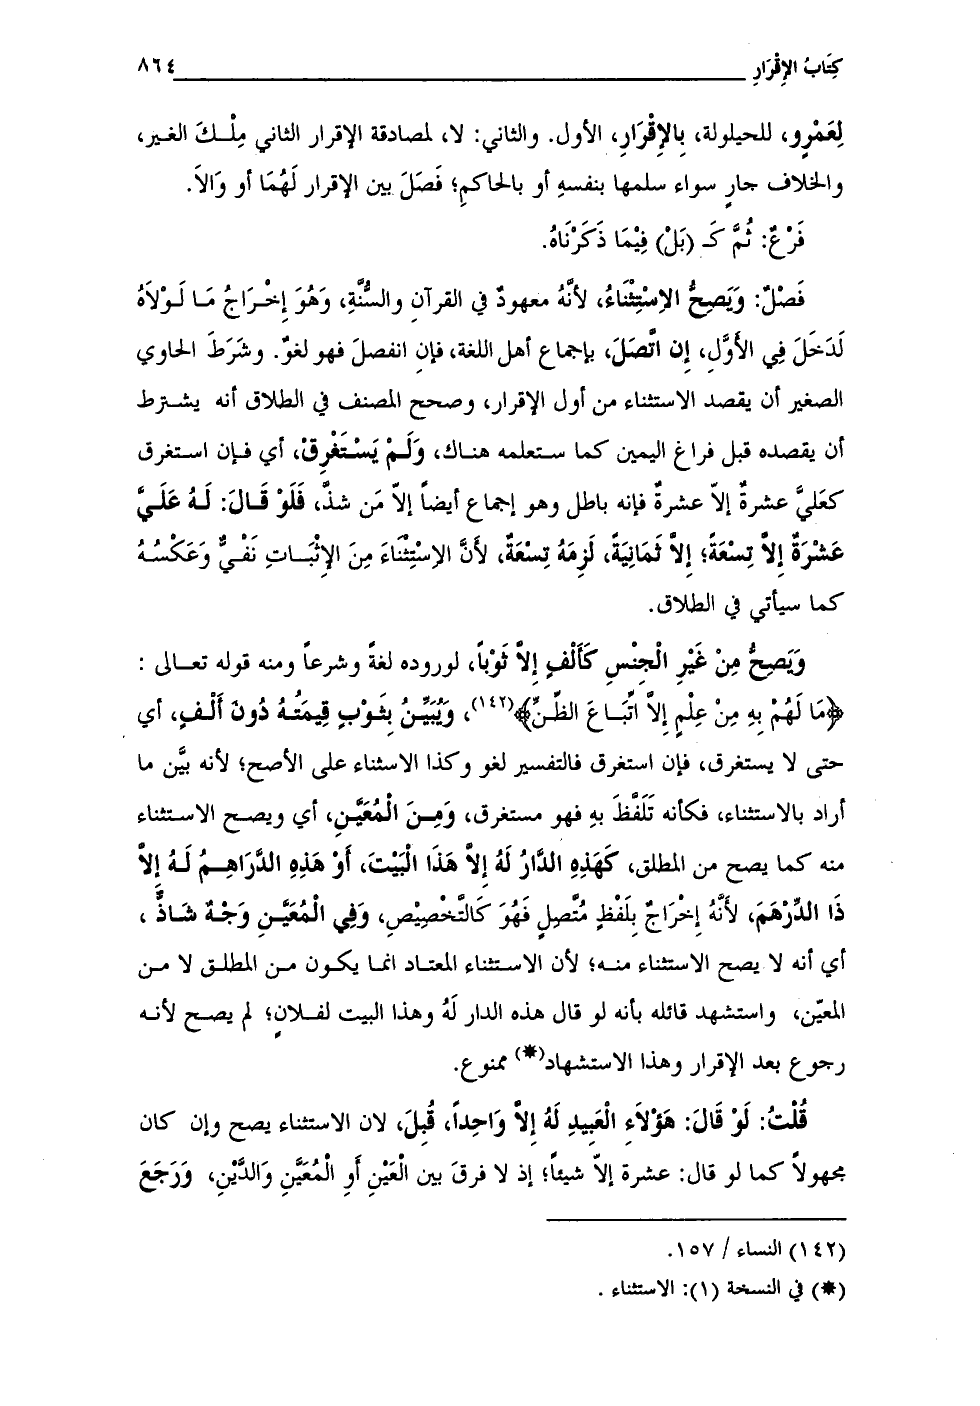 كِتَابُ الإِقْرَارِ ٨٦٤
لِعَمْرٍو، للحيلولة، بِالإِقْرَارِ، الأول. والثاني: لا، لمصادقة الإقرار الثاني مِلْكَ الغير،
والخلاف جارٍ سواء سلمها بنفسهِ أو بالحاكمِ؛ فَصَلَ بين الإقرار لَهُمَا أو وَالاَ.
فَرْعٌ: ثُمَّ كَـ (بَلْ) فِيْمَا ذَكَرْنَاهُ.
فَصْلٌ: وَيَصِحُّ الإِسْتِثْنَاءُ، لأنَّهُ معهودٌ في القرآنِ والسُّنَّةِ، وَهُوَ إِخْرَاجُ مَا لَوْلاَهُ
لَدَخَلَ فِي الأَوَّلِ، إِنِ اتَّصَلَ، بإجماع أهل اللغة، فإنِ انفصلَ فهو لغوٌ. وشَرَطَ الحاوي
الصغير أن يقصد الاستثناء من أول الإقرار، وصحح المصنف في الطلاق أنه يشترط
أن يقصده قبل فراغ اليمين كما ستعلمه هناك، وَلَمْ يَسْتَغْرِقْ، أي فإن استغرق
كعَليَّ عشرةٌ إلاّ عشرةٌ فإنه باطل وهو إجماع أيضاً إلاّ مَن شذَّ، فَلَوْ قَالَ: لَهُ عَلَيَّ
عَشْرَةٌ إلاَّ تِسْعَةً؛ إلاَّ ثَمَانِيَةً، لَزِمَهُ تِسْعَةٌ، لأَنَّ الإِسْتِثْنَاءَ مِنَ الإِثْبَاتِ نَفْيٌ وَعَكْسُهُ
كما سيأتي في الطلاق.
وَيَصِحُّ مِنْ غَيْرِ الْجِنْسِ كَأَلْفٍ إِلاَّ ثَوْباً، لوروده لغةً وشرعاً ومنه قوله تعالى :
﴿مَا لَهُمْ بِهِ مِنْ عِلْمٍ إِلاَّ اتِّبَاعَ الظَّنِّ﴾(١٤٢)، وَيُبَيِّنُ بِثَوْبٍ قِيمَتُهُ دُونَ أَلْفٍ، أي
حتى لا يستغرق، فإن استغرق فالتفسير لغو وكذا الاسثناء على الأصح؛ لأنه بيَّن ما
أراد بالاستثناء، فكأنه تَلَفَّظَ بهِ فهو مستغرق، وَمِنَ الْمُعَيَّنِ، أي ويصح الاستثناء
منه كما يصح من المطلق، كَهَذِهِ الدَّارُ لَهُ إلاَّ هَذَا الْبَيْتَ، أَوْ هَذِهِ الدَّرَاهِمُ لَهُ إلاَّ
ذَا الدِّرْهَمَ، لأَنَّهُ إِخْرَاجٌ بِلَفْظٍ مُتَّصِلٍ فَهُوَ كَالتَّخْصِيْصِ، وَفِي الْمُعَيَّنِ وَجْهٌ شَاذٌّ ،
أي أنه لا يصح الاستثناء منه؛ لأن الاستثناء المعتاد انما يكون من المطلق لا من
المعيّن، واستشهد قائله بأنه لو قال هذه الدار لَهُ وهذا البيت لفلانٍ؛ لم يصح لأنه
رجوع بعد الإقرار وهذا الاستشهاد(*) ممنوع.
قُلْتُ: لَوْ قَالَ: هَؤُلاَءِ الْعَبِيدِ لَهُ إِلاَّ وَاحِداً، قُبِلَ، لان الاستثناء يصح وإن كان
مجهولاً كما لو قال: عشرة إلاّ شيئاً؛ إذ لا فرقَ بين الْعَيْنِ أَوِ الْمُعَيَّنِ وَالدَّيْنِ، وَرَجَعَ
(١٤٢) النساء / ١٥٧.
(*) في النسخة (١): الاستثناء .